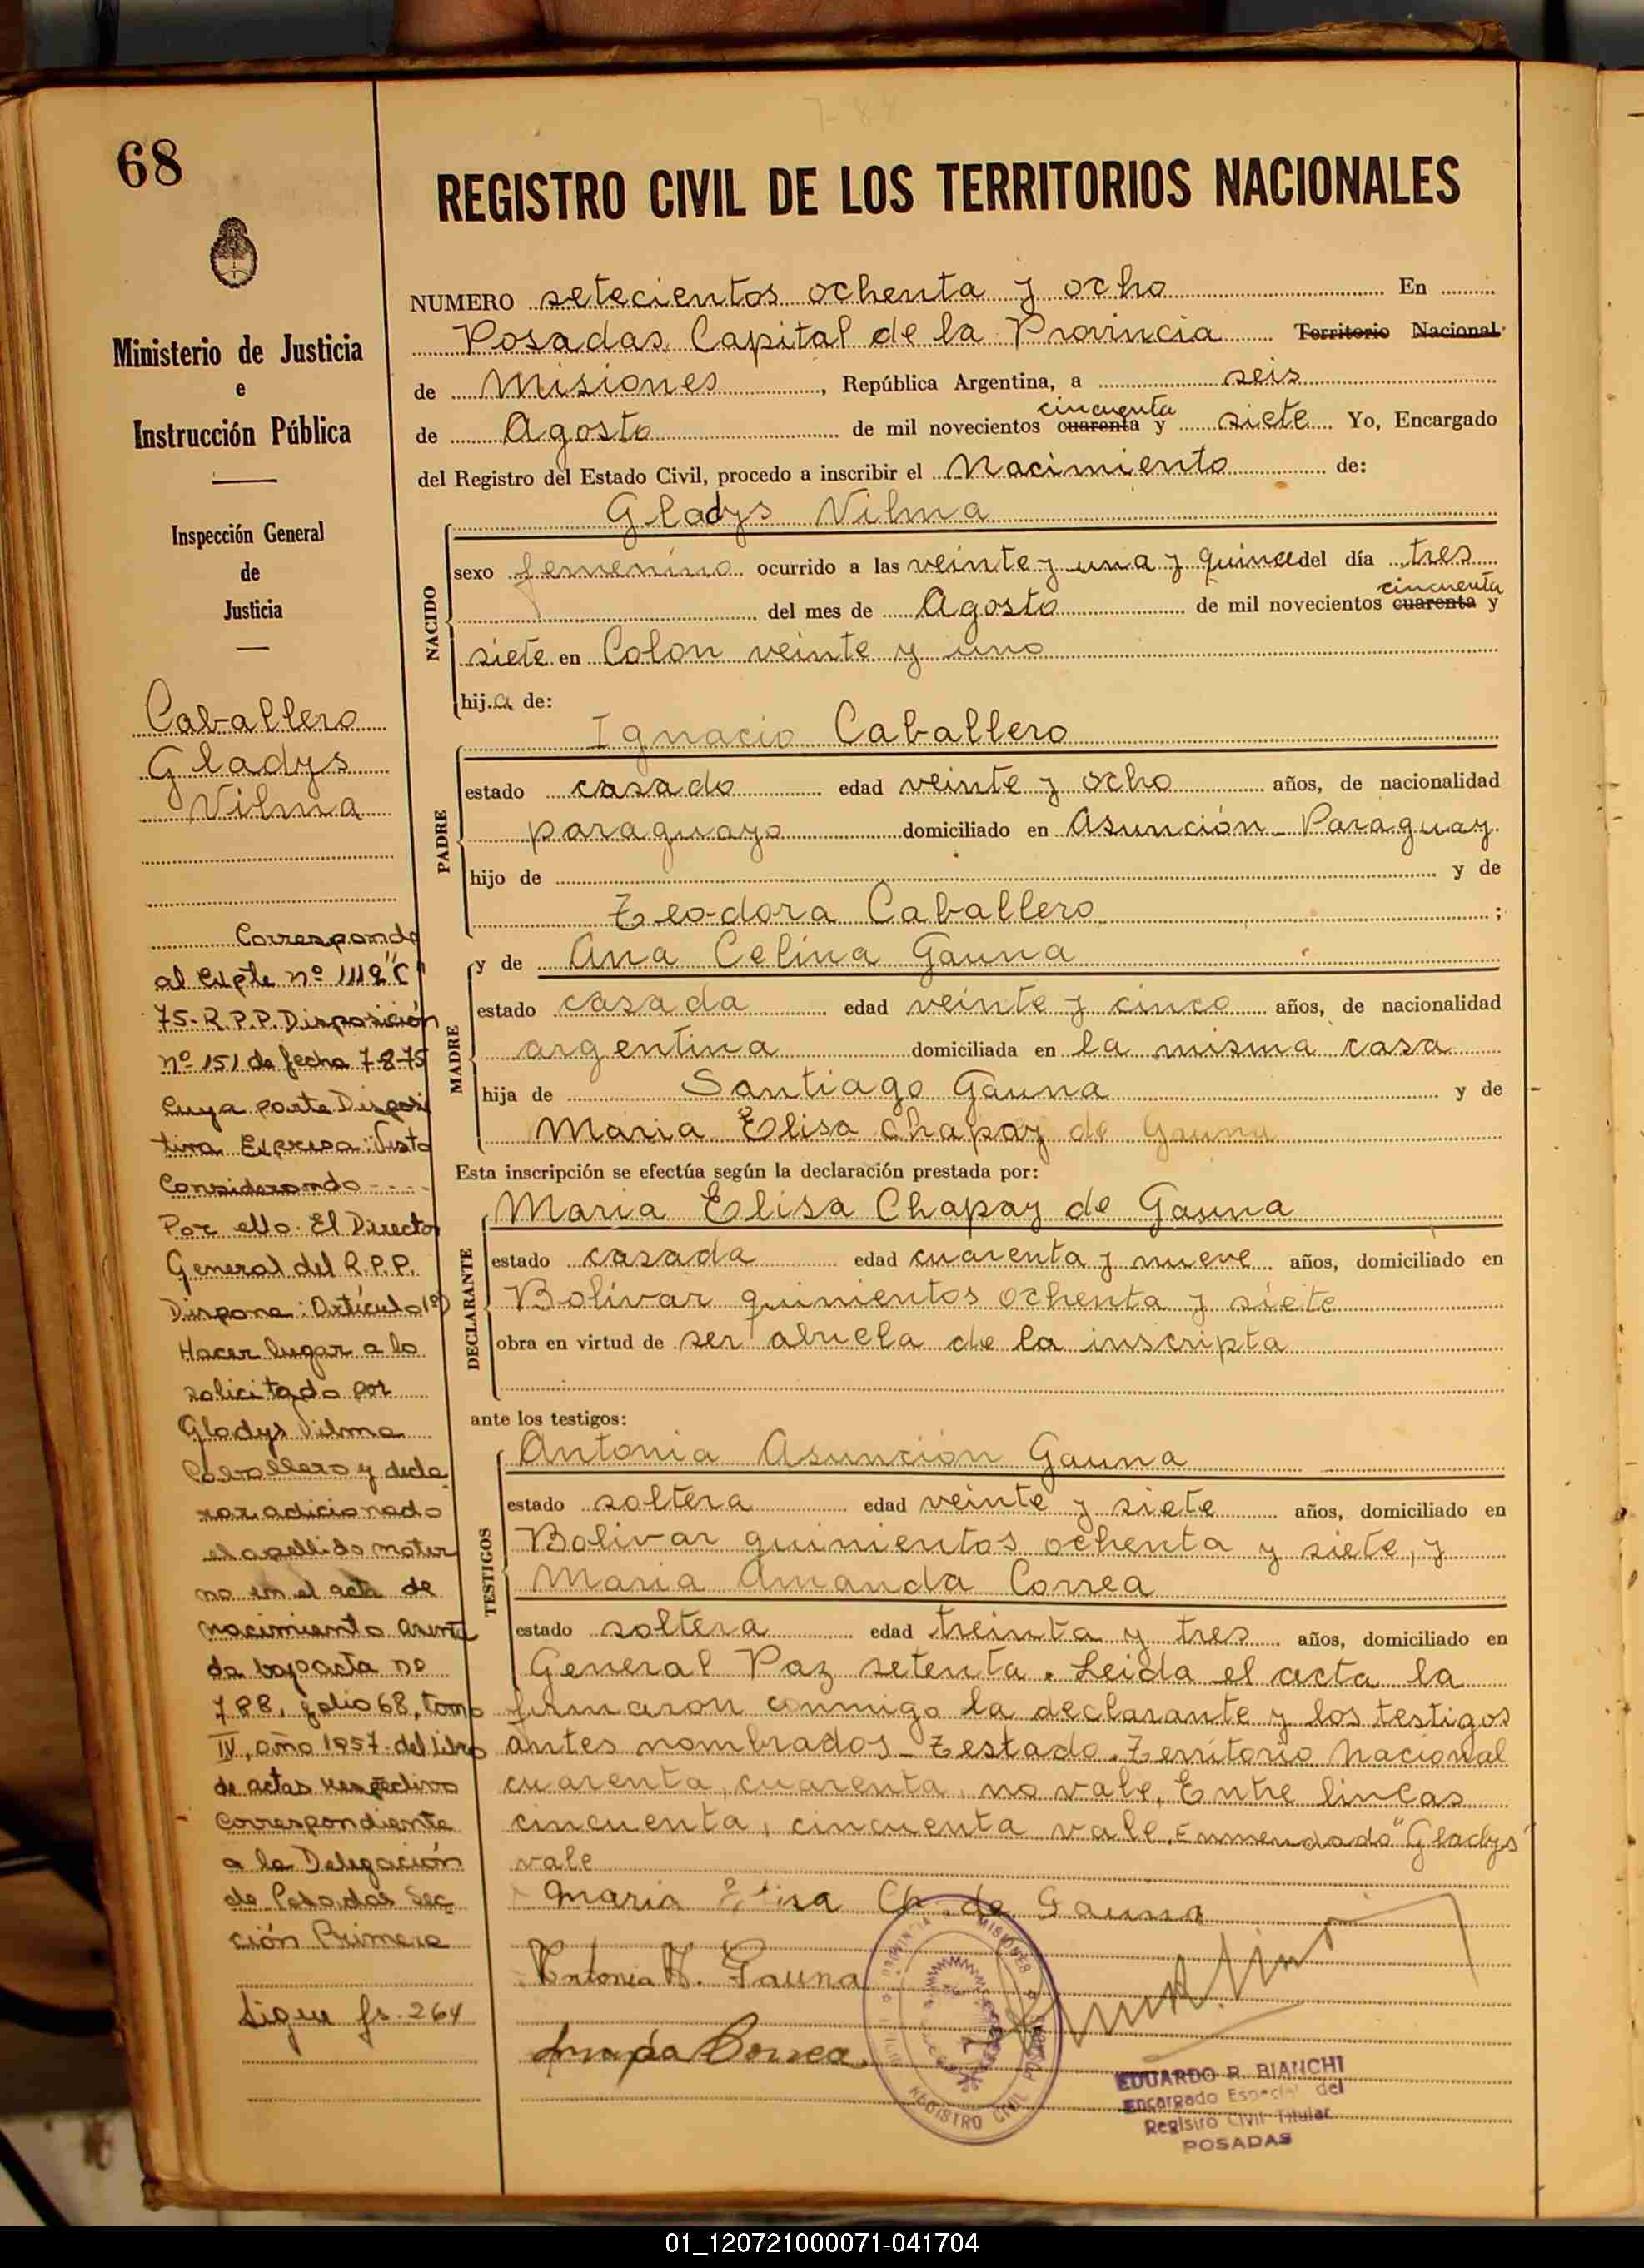 68
Ministerio de Justicia
e
Instrucción Pública
Inspección General
de
Justicia
Caballero
Gladys
Vilma
Corresponde
al Expte nº 1119 "C"
75-R.P.P. Disposición
nº 151 de fecha 7-8-75
Cuya parte Disposi
tiva Expresa: Visto
Considerando ----
Por ello. El Director
General del R.P.P.
Dispone: Artículo 1º)
Hacer lugar a lo
solicitado por
Gladys Vilma
Caballero y decla
rar adicionado
el apellido mater
no en el acta de
nacimiento asenta
da bajo acta no
788, folio 68, tomo
IV, año 1957 del libro
de actas respectivo
Correspondiente
a la Delegación
de Posadas Sec
ción Primera
Sigue fs. 264
REGISTRO CIVIL DE LOS TERRITORIOS NACIONALES
NUMERO setecientos ochenta y ocho En
Posadas, Capital de la Provincia Territorio Nacional
de Misiones, República Argentina, a seis
cincuenta
de Agosto de mil novecientos cuarenta y siete Yo, Encargado
del Registro del Estado Civil, procedo a inscribir el Nacimiento de:
Gladys Vilma
NACIDO
sexo femenino ocurrido a las veinte y una y quince del día tres
cincuenta
del mes de Agosto de mil novecientos cuarenta y
siete en Colon veinte y uno
hija de:
Ignacio Caballero
PADRE
estado casado edad veinte y ocho años, de nacionalidad
paraguayo domiciliado en Asunción - Paraguay
hijo de y de
Teodora Caballero ;
y de Ana Celina Gauna
MADRE
estado casada edad veinte y cinco años, de nacionalidad
argentina domiciliada en la misma casa
hija de Santiago Gauna y de
Maria Elisa Chapay de Gauna
Esta inscripción se efectúa según la declaración prestada por:
Maria Elisa Chapay de Gauna
DECLARANTE
estado casada edad cuarenta y nueve años, domiciliado en
Bolívar quinientos ochenta y siete
obra en virtud de ser abuela de la inscripta
ante los testigos:
Antonia Asunción Gauna
TESTIGOS
estado soltera edad veinte y siete años, domiciliado en
Bolivar quinientos ochenta y siete, y
Maria Amanda Correa
estado soltera edad treinta y tres años, domiciliado en
General Paz setenta. Leida el acta la
firmaron conmigo la declarante y los testigos
antes nombrados - Testado. Territorio Nacional
cuarenta, cuarenta, no vale. Entre lineas
cincuenta, cincuenta vale. Enmendado "Gladys"
vale
Maria Elisa Ch. de Gauna
Antonia A. Gauna
Correa
PROVINCIA MISIONES
REGISTRO CIVIL
EDUARDO R. BIANCHI
Encargado Especial del
Registro Civil Titular
POSADAS
01_120721000071-041704